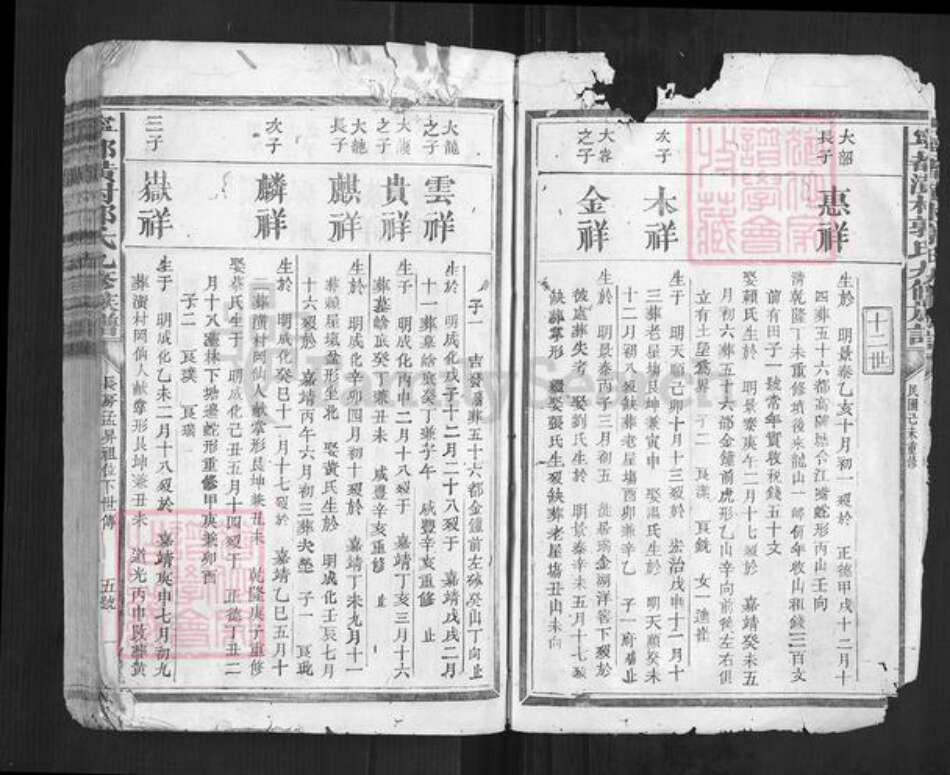 十二世
大韶長子
惠祥
生於 明景泰乙亥十月初一歿於 正德甲戌十二月十
四葬五十六都高陂墟合江壩蛇形丙山壬向
清乾隆丁未重修墳後來龍山一嶂每年收山租錢三百文
前有田子一號常年實收稅錢五十文
娶賴氏生於 明景泰庚午二月十七歿於 嘉靖癸未五
月初六葬五十六都金鐘前虎形乙山辛向前後左右俱
立有土堡為界 子二 良漢 良銑 女一進崔
次子
木祥
生於 明天順己卯十月十三歿於 弘治戊申十一月十
三葬老屋塲艮坤兼寅申 娶溫氏生於 明天順癸未
十二月初八歿缺葬老屋塲酉卯兼辛乙 子一 止
大容之子
金祥
生於 明景泰丙子三月初五 徙居瑞金湖洋窖下歿於
彼處葬失考 娶劉氏生於 明景泰辛未五月十七歿
缺葬掌形 繼娶張氏生歿缺葬老屋塲丑山未向
子一 吉發 葬五十六都金鐘前左 癸山丁向止
大龍之子
雲祥
生於 明成化戊子十二月二十八歿于 嘉靖戊戌二月
十一葬墓 底癸丁兼子午 咸豐辛亥重修 止
之子
貴祥
生于 明成化丙申二月十八歿于 嘉靖丁亥三月十六
葬墓 底癸丁兼丑未 咸豐辛亥重修 止
大龍長子
麒祥
生於 明成化辛卯四月初十歿於 嘉靖丁未九月十一
葬 屋塲盆形坐北 娶黃氏生於 明成化壬辰七月
十六歿於 嘉靖丙午六月初三葬失墓 子一 良玭
次子
麟祥
生於 明成化癸巳十一月十七歿於 嘉靖乙巳五月十
二葬濆村岡仙人獻掌形艮坤兼丑未 乾隆庚子重修
娶蔡氏生于 明成化己丑五月十四歿于 正德丁丑二
月十八 林下塘邊蛇形重修甲庚兼卯酉
子二 良璞 良瑞
三子
嶽祥
生于 明成化乙未二月十八歿於 嘉靖庚申七月初九
葬濆村岡仙人獻掌形艮坤兼丑未 道光丙申改葬黃
寧都濆村郭氏九修族譜
民國己未重修
長房孟昇祖位下世傳 五號
FamilySearch